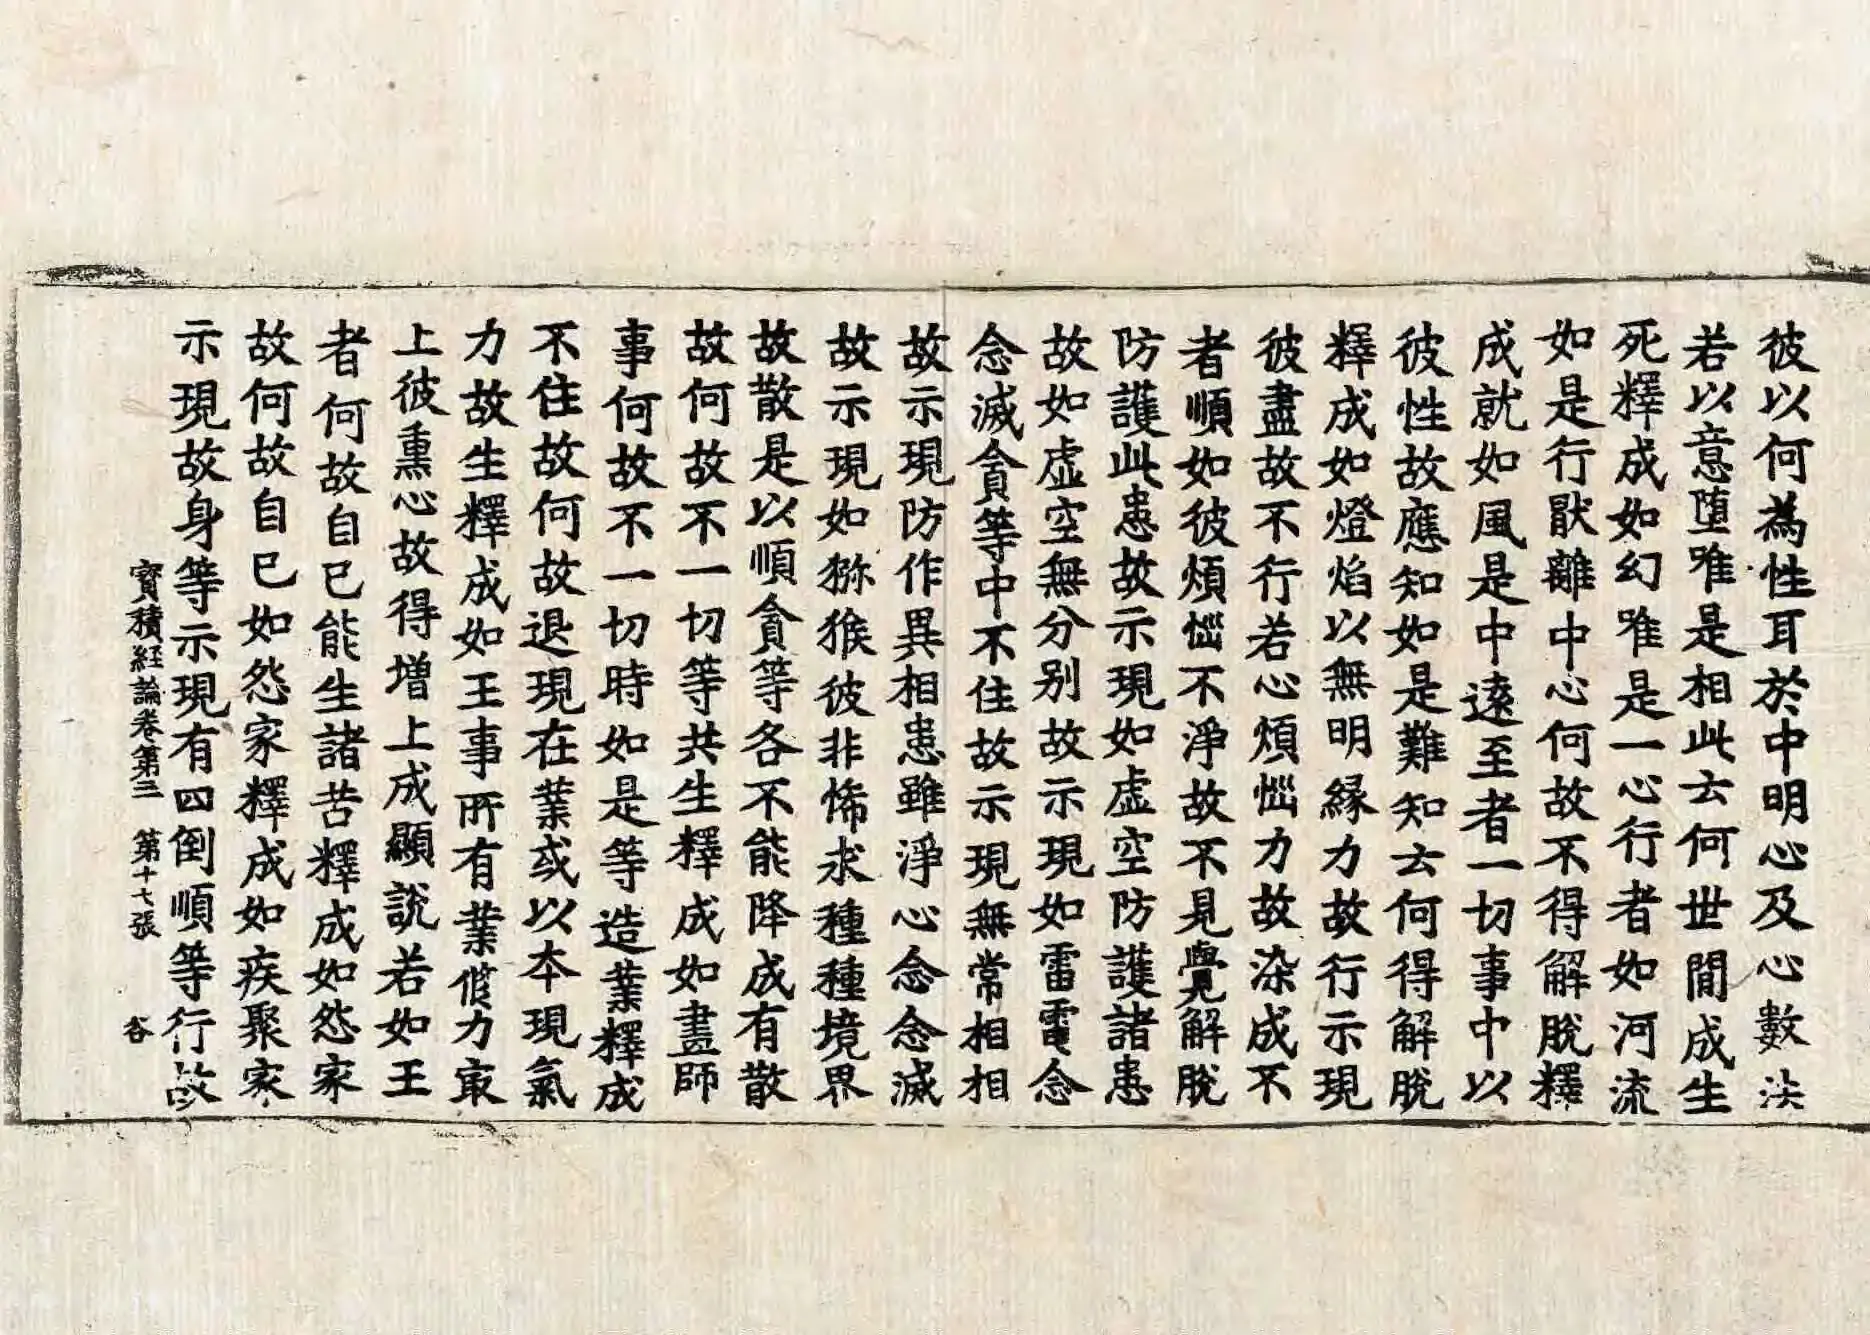 彼以何為性耳於中明心及心數法
若以意堕唯是相此云何世間成生
死釋成如幻唯是一心行者如河流
如是行猒離中心何故不得解脫釋
成就如風是中遠至者一切事中以
彼性故應知如是難知云何得解脫
釋成如燈焰以無明緣力故行示現
彼盡故不行若心煩惱力故染成不
者順如彼煩惱不淨故不見覺解脫
防護此患故示現如虛空防護諸患
故如虛空無分別故示現如雷電念
念滅貪等中不住故示現無常相相
故示現防作異相患雖淨心念念滅
故示現如猕猴彼非悕求種種境界
故散是以順貪等各不能降成有散
故何故不一切等共生釋成如畫師
事何故不一切時如是等造業釋成
不住故何故退現在業或以本現氣
力故生釋成如王事所有業脩力㝡
上彼熏心故得增上成顯說若如王
者何故自已能生諸苦釋成如怨家
故何故自已如怨家釋成如疾聚家
示現故身等示現有四倒順等行故
寶積経論卷第三　第十七張　谷